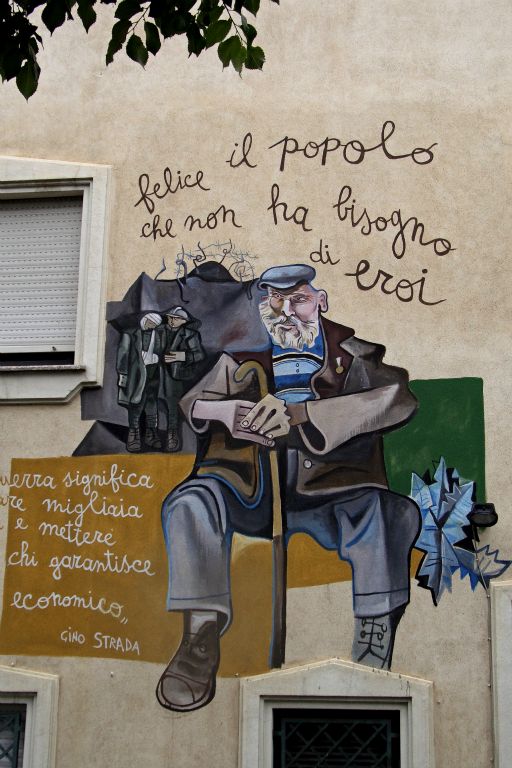 felice il popolo
che non ha bisogno
di eroi
guerra significa
are migliaia
e mettere
chi garantisce
economico,,
GINO STRADA